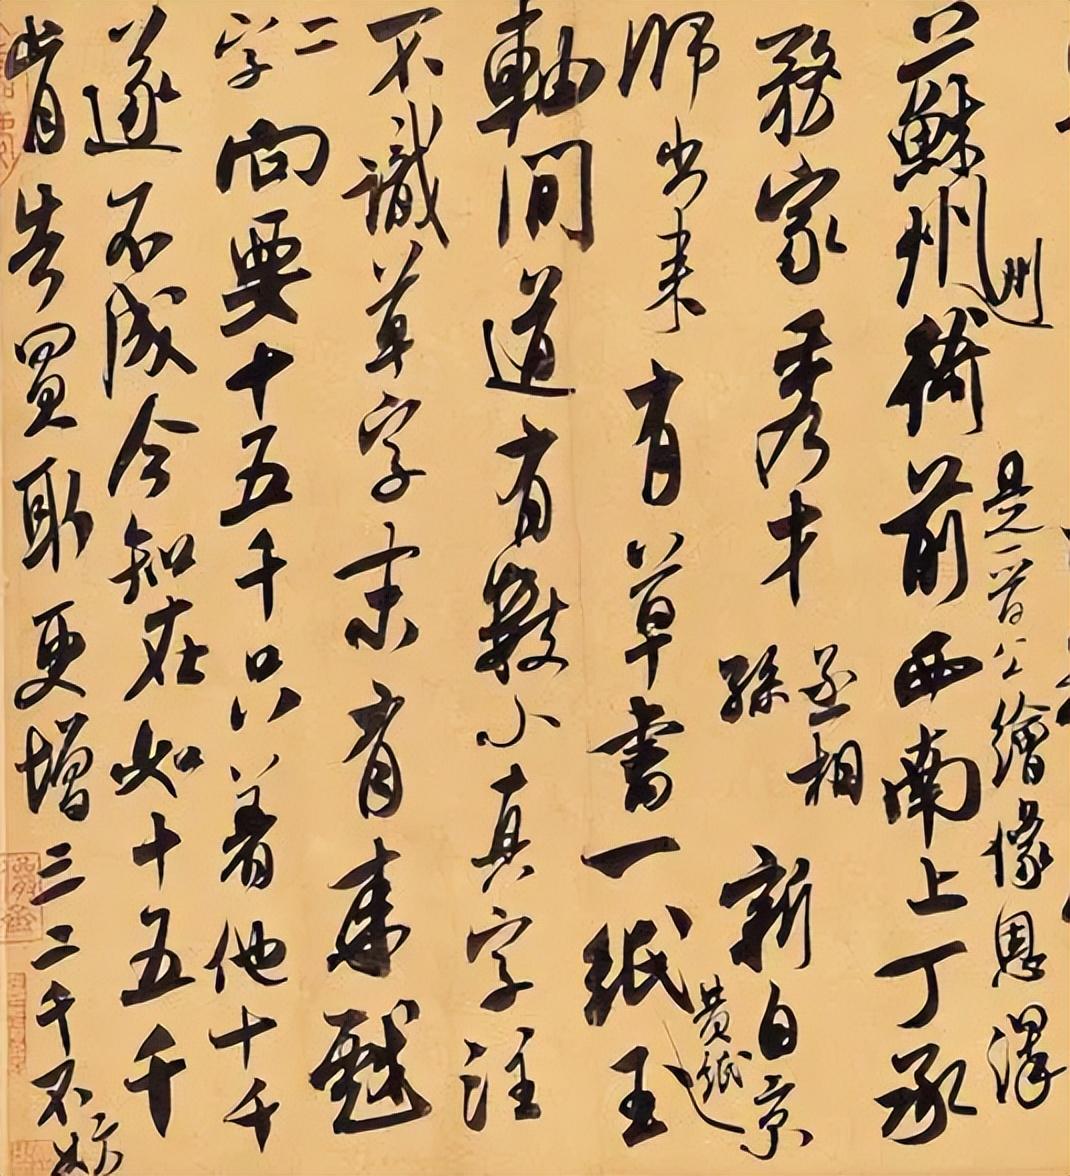 蘇州州衙前西南上丁承
是一晉公繪像恩澤
務家秀才丞相孫新自京
師出來有草書一紙黃紙玉
軸間道有數小真字注
不識草字末有來戩
二字向要十五千只著他十千
遂不成今知在如十五千
肯告買取更增三二千不妨